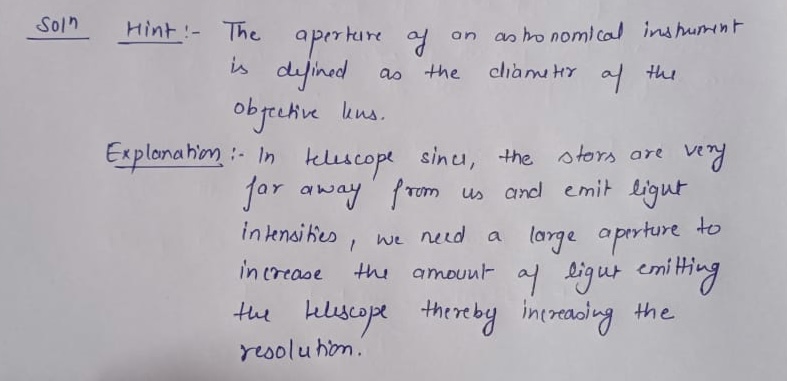 Soln Hint :- The aperture of an astronomical instrument
is defined as the diameter of the
objective lens.
Explanation :- In telescope since, the stars are very
far away from us and emit light
intensities, we need a large aperture to
increase the amount of light emitting
the telescope thereby increasing the
resolution.